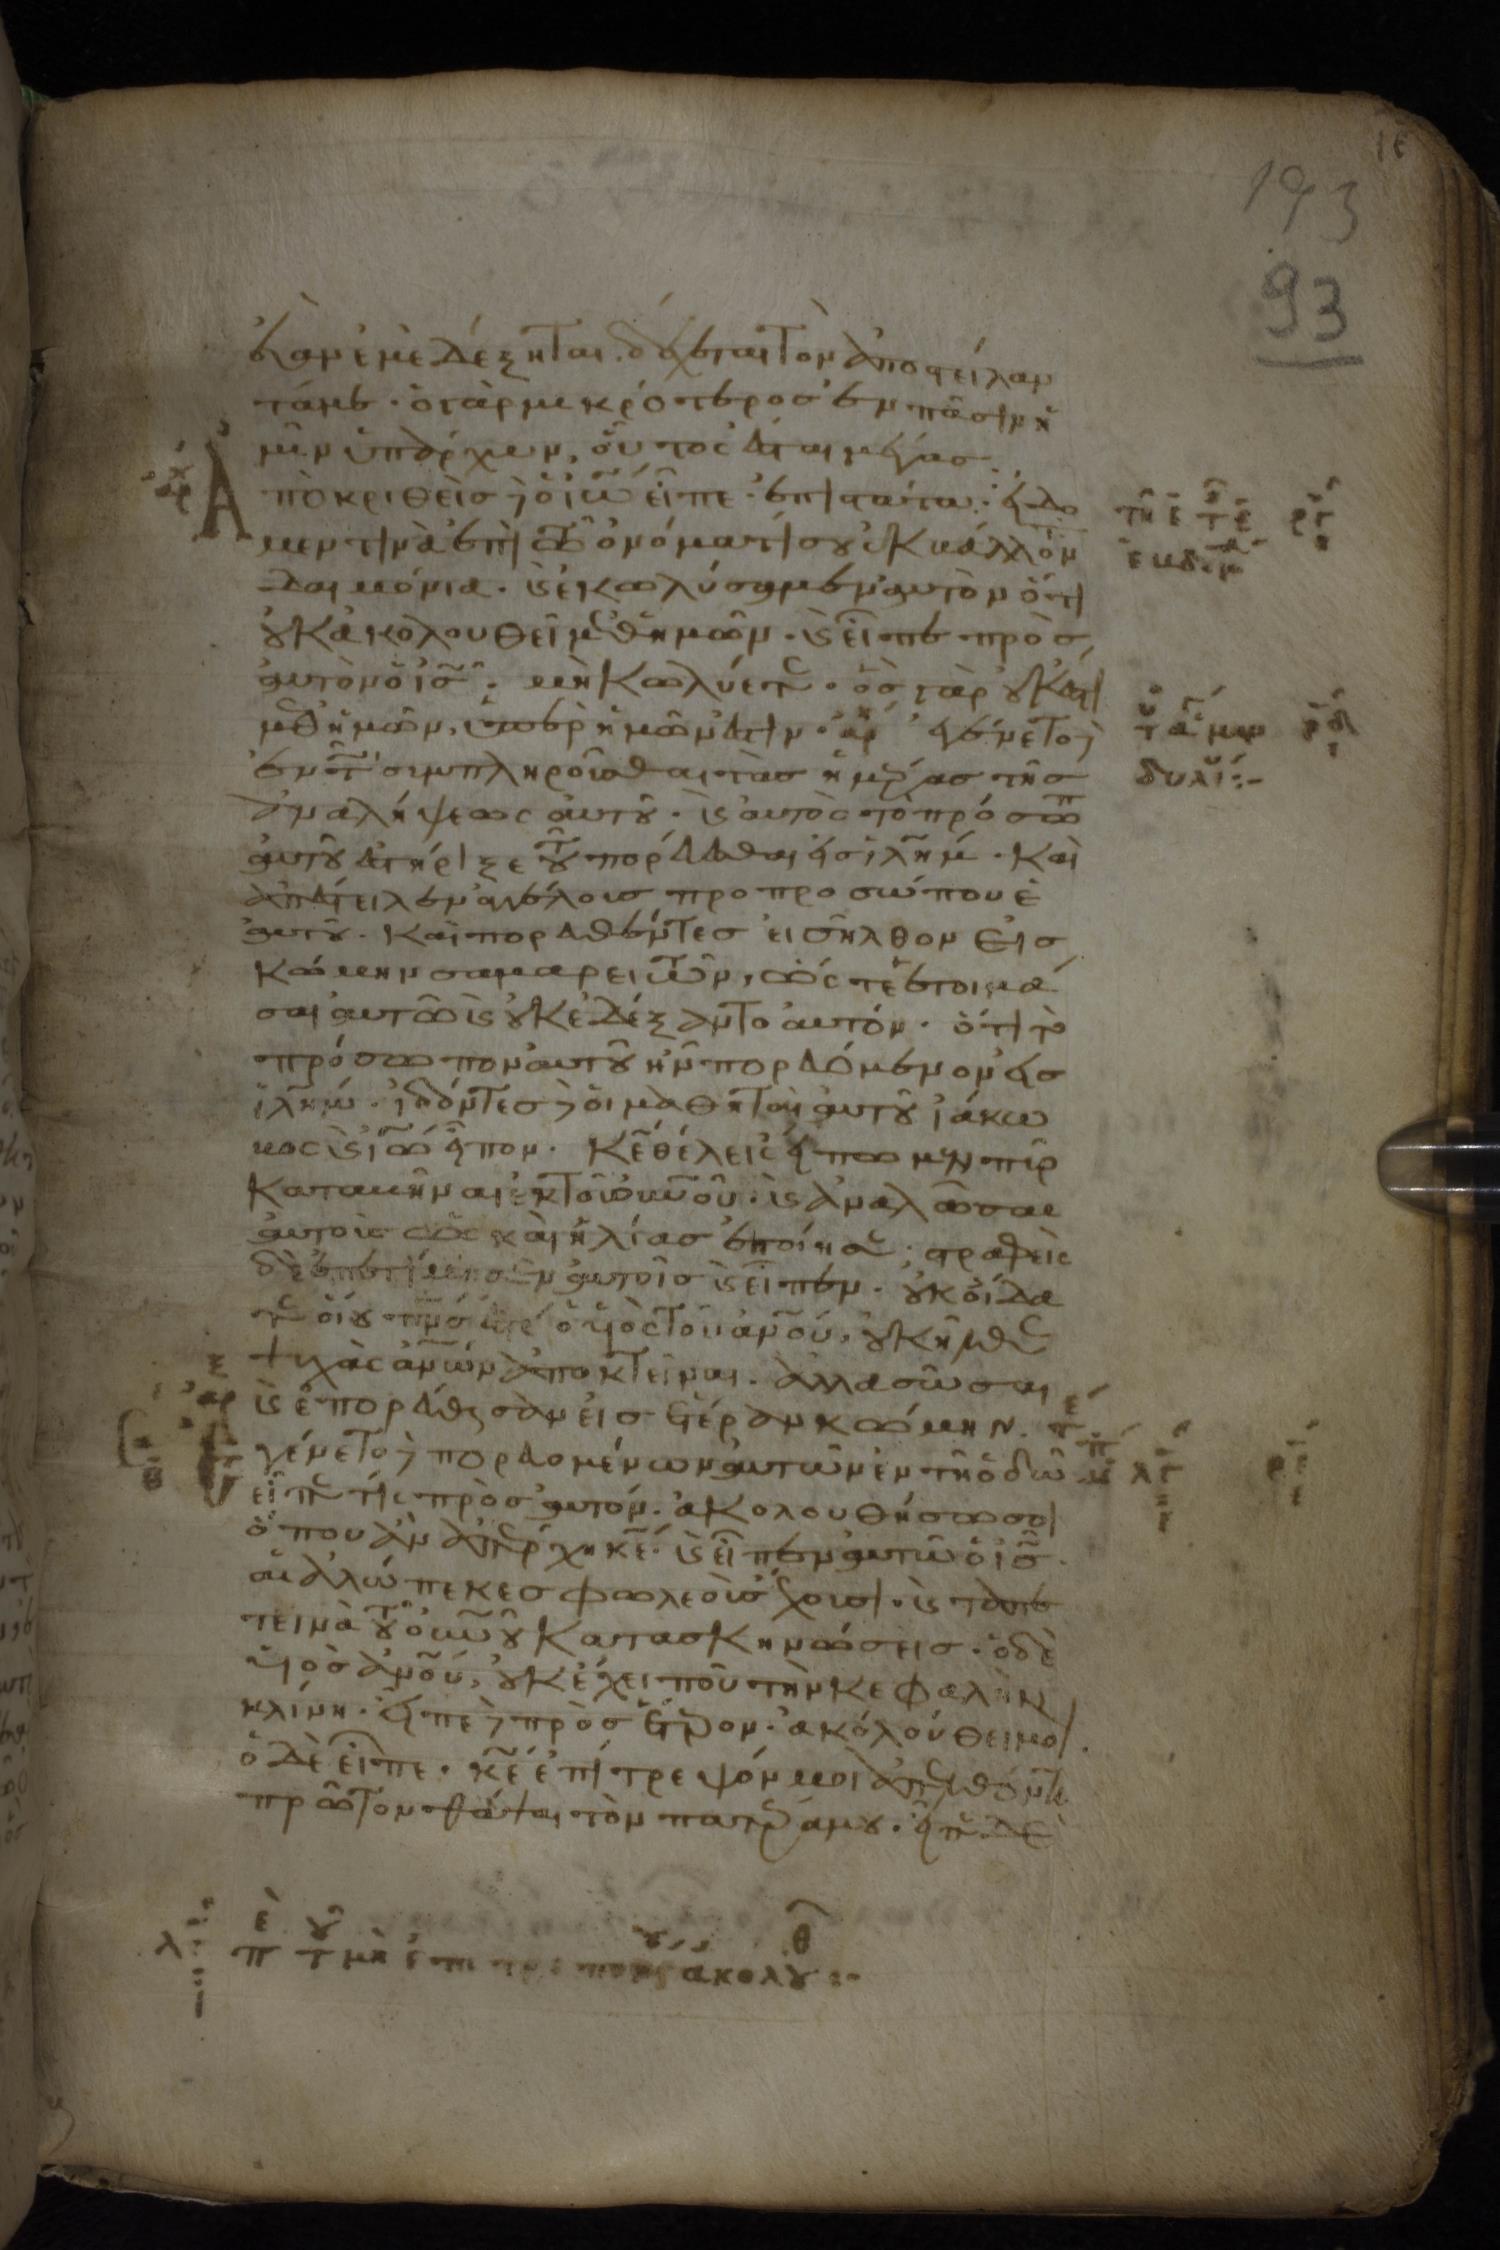 ιε
193
93
ὃς ἂν ἐμὲ δέξηται. δέχεται τὸν ἀποστείλαν
τά με. ὁ γὰρ μικρότερος ἐν πᾶσιν ὑ
μῖν ὑπάρχων, οὗτος ἔσται μέγας.
Ἀποκριθεὶς δὲ ὁ ἰω εἶπε. ἐπιστάτα. εἴδο
μέν τινα ἐπὶ τῶ ὀνόματί σου ἐκβάλλον
δαιμόνια. καὶ ἐκωλύσαμεν αὐτὸν ὅτι
οὐκ ἀκολουθεῖ μεθ ἡμῶν. καὶ εἶπε πρὸς
αὐτὸν ὁ ις. μὴ κωλύετε. ὃς γὰρ οὐκ ἔστι
μεθ ἡμῶν, ὑπὲρ ἡμῶν ἐστιν. ἐγένετο δὲ
ἐν τῶ συμπληροῦσθαι τὰς ἡμέρας τῆς
ἀναλήψεως αὐτοῦ. καὶ αὐτὸς τὸ πρόσωπ
αὐτοῦ ἐστήριξε τοῦ πορεύεσθαι εἰς ἰλημ. Καὶ
ἀπέστειλεν ἀγγέλους προ προσώπου ἑ
αυτοῦ. Καὶ πορευθέντες εἰσῆλθον εἰς
κώμην σαμαρειτῶν, ὥστε ἑτοιμά
σαι αὐτῶ καὶ οὐκ ἐδέξαντο αὐτόν. ὅτι τὸ
πρόσωπον αὐτοῦ ἦν πορευόμενον εἰς
ἰλημ. ἰδόντες δὲ οἱ μαθηταὶ αὐτοῦ ἰάκω
βος καὶ ἰω εἶπον. κε θέλεις εἴπωμεν πῦρ
καταβῆναι ἐκ τοῦ οὐνου. καὶ ἀναλῶσαι
αὐτοὺς ὡς καὶ ἠλίας ἐποίησε. στραφεὶς
δὲ ἐπετίμησεν αὐτοῖς καὶ εἶπεν. οὐκ οἴδα
τε οἵου πνς ἐστέ ὁ υἱὸς τοῦ ανου, οὐκ ἦλθε
ψυχὰς ανων ἀποκτεῖναι. ἀλλα σῶσαι
καὶ ἐπορεύθησαν εἰς ἑτέραν κώμην.
γένετο δὲ πορευομένων αὐτῶν ἐν τῆ ὁδῶ
εἶπέ τις πρὸς αὐτόν. ἀκολουθήσω σοι
ὅπου ἂν ἀπέρχη κε. καὶ εἶπεν αὐτῶ ὁ ις.
αἱ ἀλώπεκες φωλεοὺς ἔχουσι. καὶ τὰ πε
τεινὰ τοῦ οὐνου κατασκηνώσεις. ὁ δὲ
υἱὸς ανου, οὐκ ἔχει ποῦ τὴν κεφαλὴν
κλίνη. εἶπε δὲ πρὸς ἕτερον. ἀκολούθει μοι.
ὁ δὲ εἶπε. κε ἐπίτρεψόν μοι ἀπελθόντι
πρῶτον θάψαι τὸν πατέρα μου. εἶπε δὲ